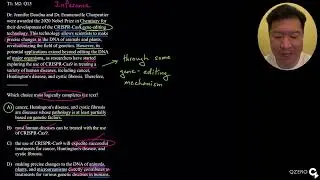 T1: M2: Q13
Inference
Dr. Jennifer Doudna and Dr. Emmanuelle Charpentier
were awarded the 2020 Nobel Prize in Chemistry for
their development of the CRISPR-Cas9 gene-editing
technology. This technology allows scientists to make
precise changes to the DNA of animals and plants,
revolutionizing the field of genetics. However, its
potential applications extend beyond editing the DNA
of major organisms, as researchers have started
exploring the use of CRISPR-Cas9 in treating a
variety of human diseases, including cancer,
Huntington's disease, and cystic fibrosis. Therefore,
through some
gene-editing
mechanism
Which choice most logically completes the text?
A) cancer, Huntington's disease, and cystic fibrosis
are diseases whose pathology is at least partially
based on genetic factors.
B) most human diseases can be treated with the use
of CRISPR-Cas9.
C) the use of CRISPR-Cas9 will expedite successful
treatments for cancer, Huntington's disease, and
cystic fibrosis.
D) making precise changes to the DNA of animals,
plants, and microorganisms directly contributes to
treatments for various genetic diseases in humans.
QZERO